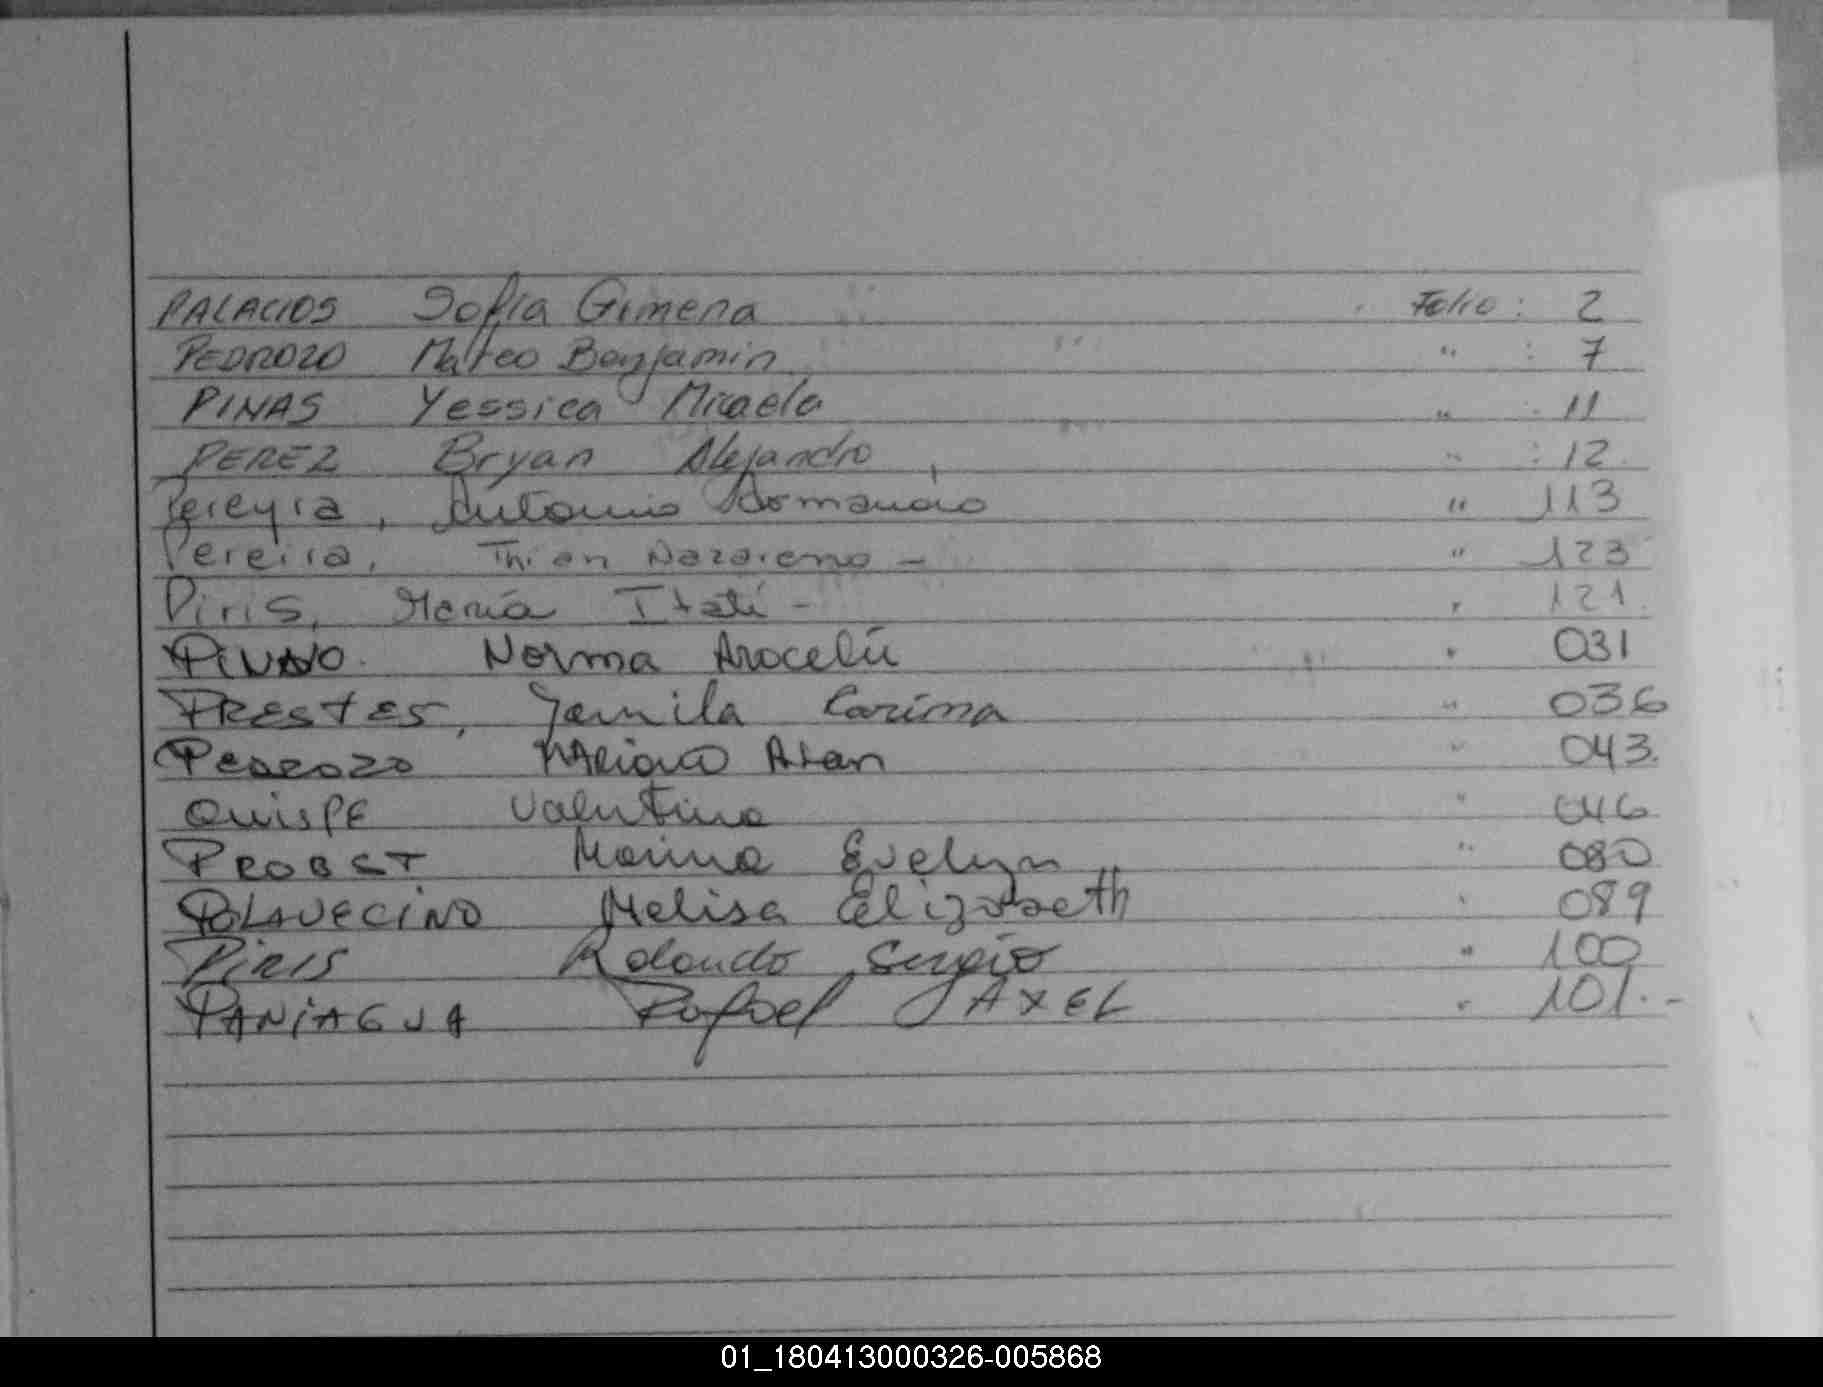 PALACIOS Sofia Gimena Folio : 2
PEDROZO Mateo Benjamin " : 7
PINAS Yessica Micaela " : 11
PEREZ Bryan Alejandro " : 12
Pereyra, Antonio " 113
Pereira, Thian Nazareno - " 123
Piris, María Itatí - " 121
Norma " 031
PRESTES, Jamila Carima " 036
Pedrozo Alan " 043.
QuispE Valentino " 046
PROBST Marina Evelyn " 080
POLAVECINO Melisa Elizabeth " 089
PIRIS Rolando Sergio " 100
PANIAGUA Rafael AXEL " 101.-
01_180413000326-005868